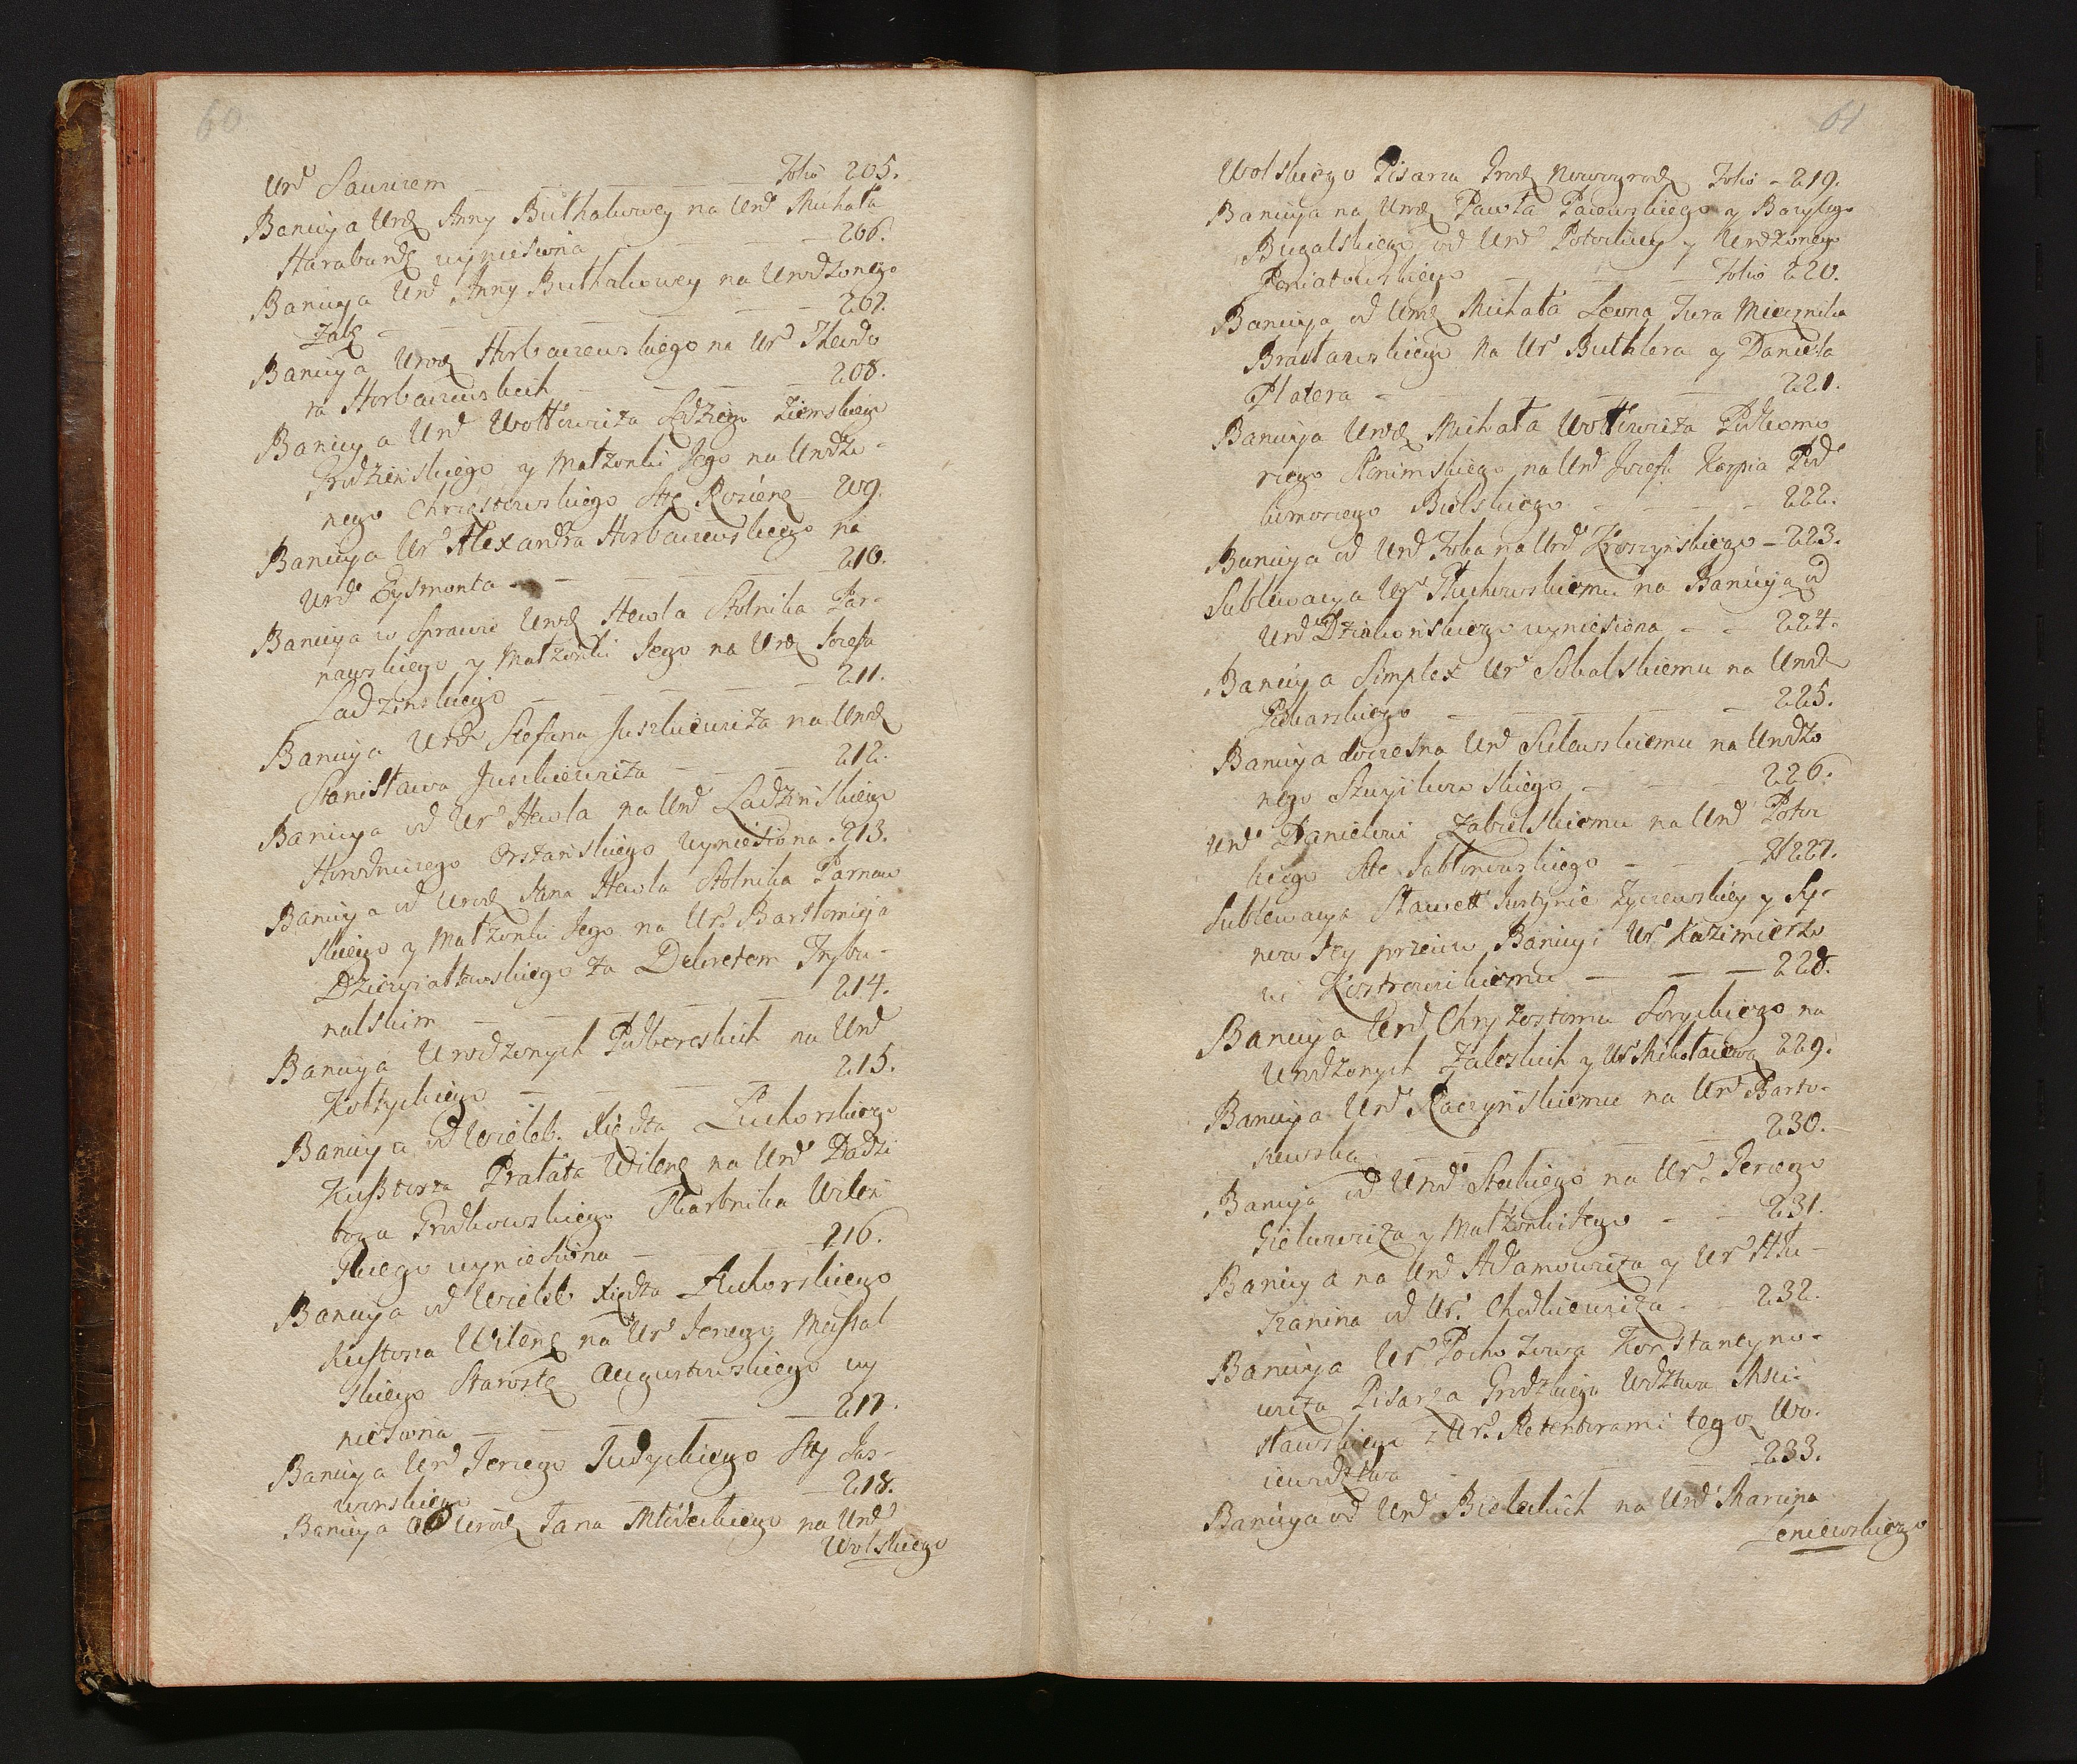 60
Urd Saurem — — — — Folio 205.
Banicya Urodz Anny Buthalowey na Urd Michała
Haraburdę wyniesiona — — — 206.
Banicya Urd Anny Buthalowey na Urodzonego
Zabę — — — — — 207.
Banicya Urodz Horbaczewskiego na Ur Theodo
ra Horbaczewskich — — — — 208.
Banicya Urd Wołłowicza Sędziego Ziemskiego
Grodzieńskiego y Małzonki Jego na Urodzo-
nego Chrząstowskiego Stę Rozienę 209.
Banicya Ur Alexandra Horbaczewskiego na
Urd Eysmonta — — — — — 210.
Banicya w Sprawie Urodz Hewla Stolnika Par-
nawskiego y Małzonki Jego na Urodz Jozefa
Ladzinskiego — — — — — 211.
Banicya Urodz Stefana Juszkiewicza na Urodz
Stanisława Juszkiewicza — — — 212.
Banicya od Ur Hewla na Urd Ladzińskiego
Horodniczego Orszańskiego wyniesiona. 213.
Banicya od Urodz Jana Hewla Stolnika Parnaw
skiego y Małzonki Jego na Ur Bartłomieja
Dziczyiałtowskiego za Dekretem Trybu-
nalskim — — — — — 214.
Banicya Urodzonych Podbereskich na Urd
Kołtyckiego — — — — 215.
Banicya od Wieleb. Xiędza Zuchorskiego
Kusztosza Prałata Wileńę na Urd Dadzi
boga Grodkowskiego Skarbnika Wileń
skiego wyniesiona — — — 216.
Banicya od Wieleb Xiędza Zuchorskiego
Kustosza Wileńę na Ur Jerzego Massal
skiego Starostę Augustowskiego wy
niesiona — — — — — 217.
Banicya Urd Jerzego Judyckiego Sty Jas-
worskiego — — — — 218.
Banicya od Urodz Jana Młodeckiego na Urd
Wolskiego
61
Wolskiego Pisarza Grodz Nowogrodz Folio - 219.
Banicya na Urodz Pawła Paiewskiego y Bazylego
Bugalskiego od Urd Potockiey y Urodzonego
Poniatowskiego — — — Folio 220.
Banicya od Urodz Michała Leona Jura Miecznika
Bracławskiego na Ur Buthlera y Daniela
Platera — — — — 221.
Banicya Urodz Michała Wołłowicza Podkomo
rzego Słonimskiego na Urd Jozefa Karpia Pod
komorzego Bielskiego — — — 222.
Banicya od Urd Zoba na Urd Kroszyńskiego — 223.
Sublewacya Ur Tłuchowskiemu na Banicyą od
Urd Dziakońskiego wyniesiona — — 224.
Banicya Simplex Ur Sobalskiemu na Urodz
Piekarskiego — — — — 225.
Banicya doczesna Urd Sulewskiemu na Urodzo
nego Szuyikowskiego — — — 226.
Urd Danielowi Zabielskiemu na Urd Potoc
kiego Ste Jabłonowskiego — — — 227.
Sublewacya Sławett Justynie Zyczewskiey y Sy-
nowi Jey przeciw Banicyi Ur Kazimierzo
wi Kostrowickiemu — — — 228.
Banicya Urd Chryzostoma Sorychiego na
Urodzonych Zaleskich y Ur Mikołaiewą 229.
Banicya Urd Raczyńskiemu na Urd Barto-
szewska — — — — 230.
Banicya od Urd Steckiego na Ur Jerzego
Gielwicza y Małzonki Jego — — 231.
Banicya na Urd Adamowicza y Ur Hlu-
szanina od Ur. Chodkiewicza — 232.
Banicya Ur Pocho Zowa Konstantyno-
wicza Pisarza Grodzkiego Wodztwa Msci-
sławskiego z Ur. Retentorami tegoz Wo-
iewodztwa — — — 233.
Banicya od Urd Bieleckich na Urd Marcina
Leniewskiego